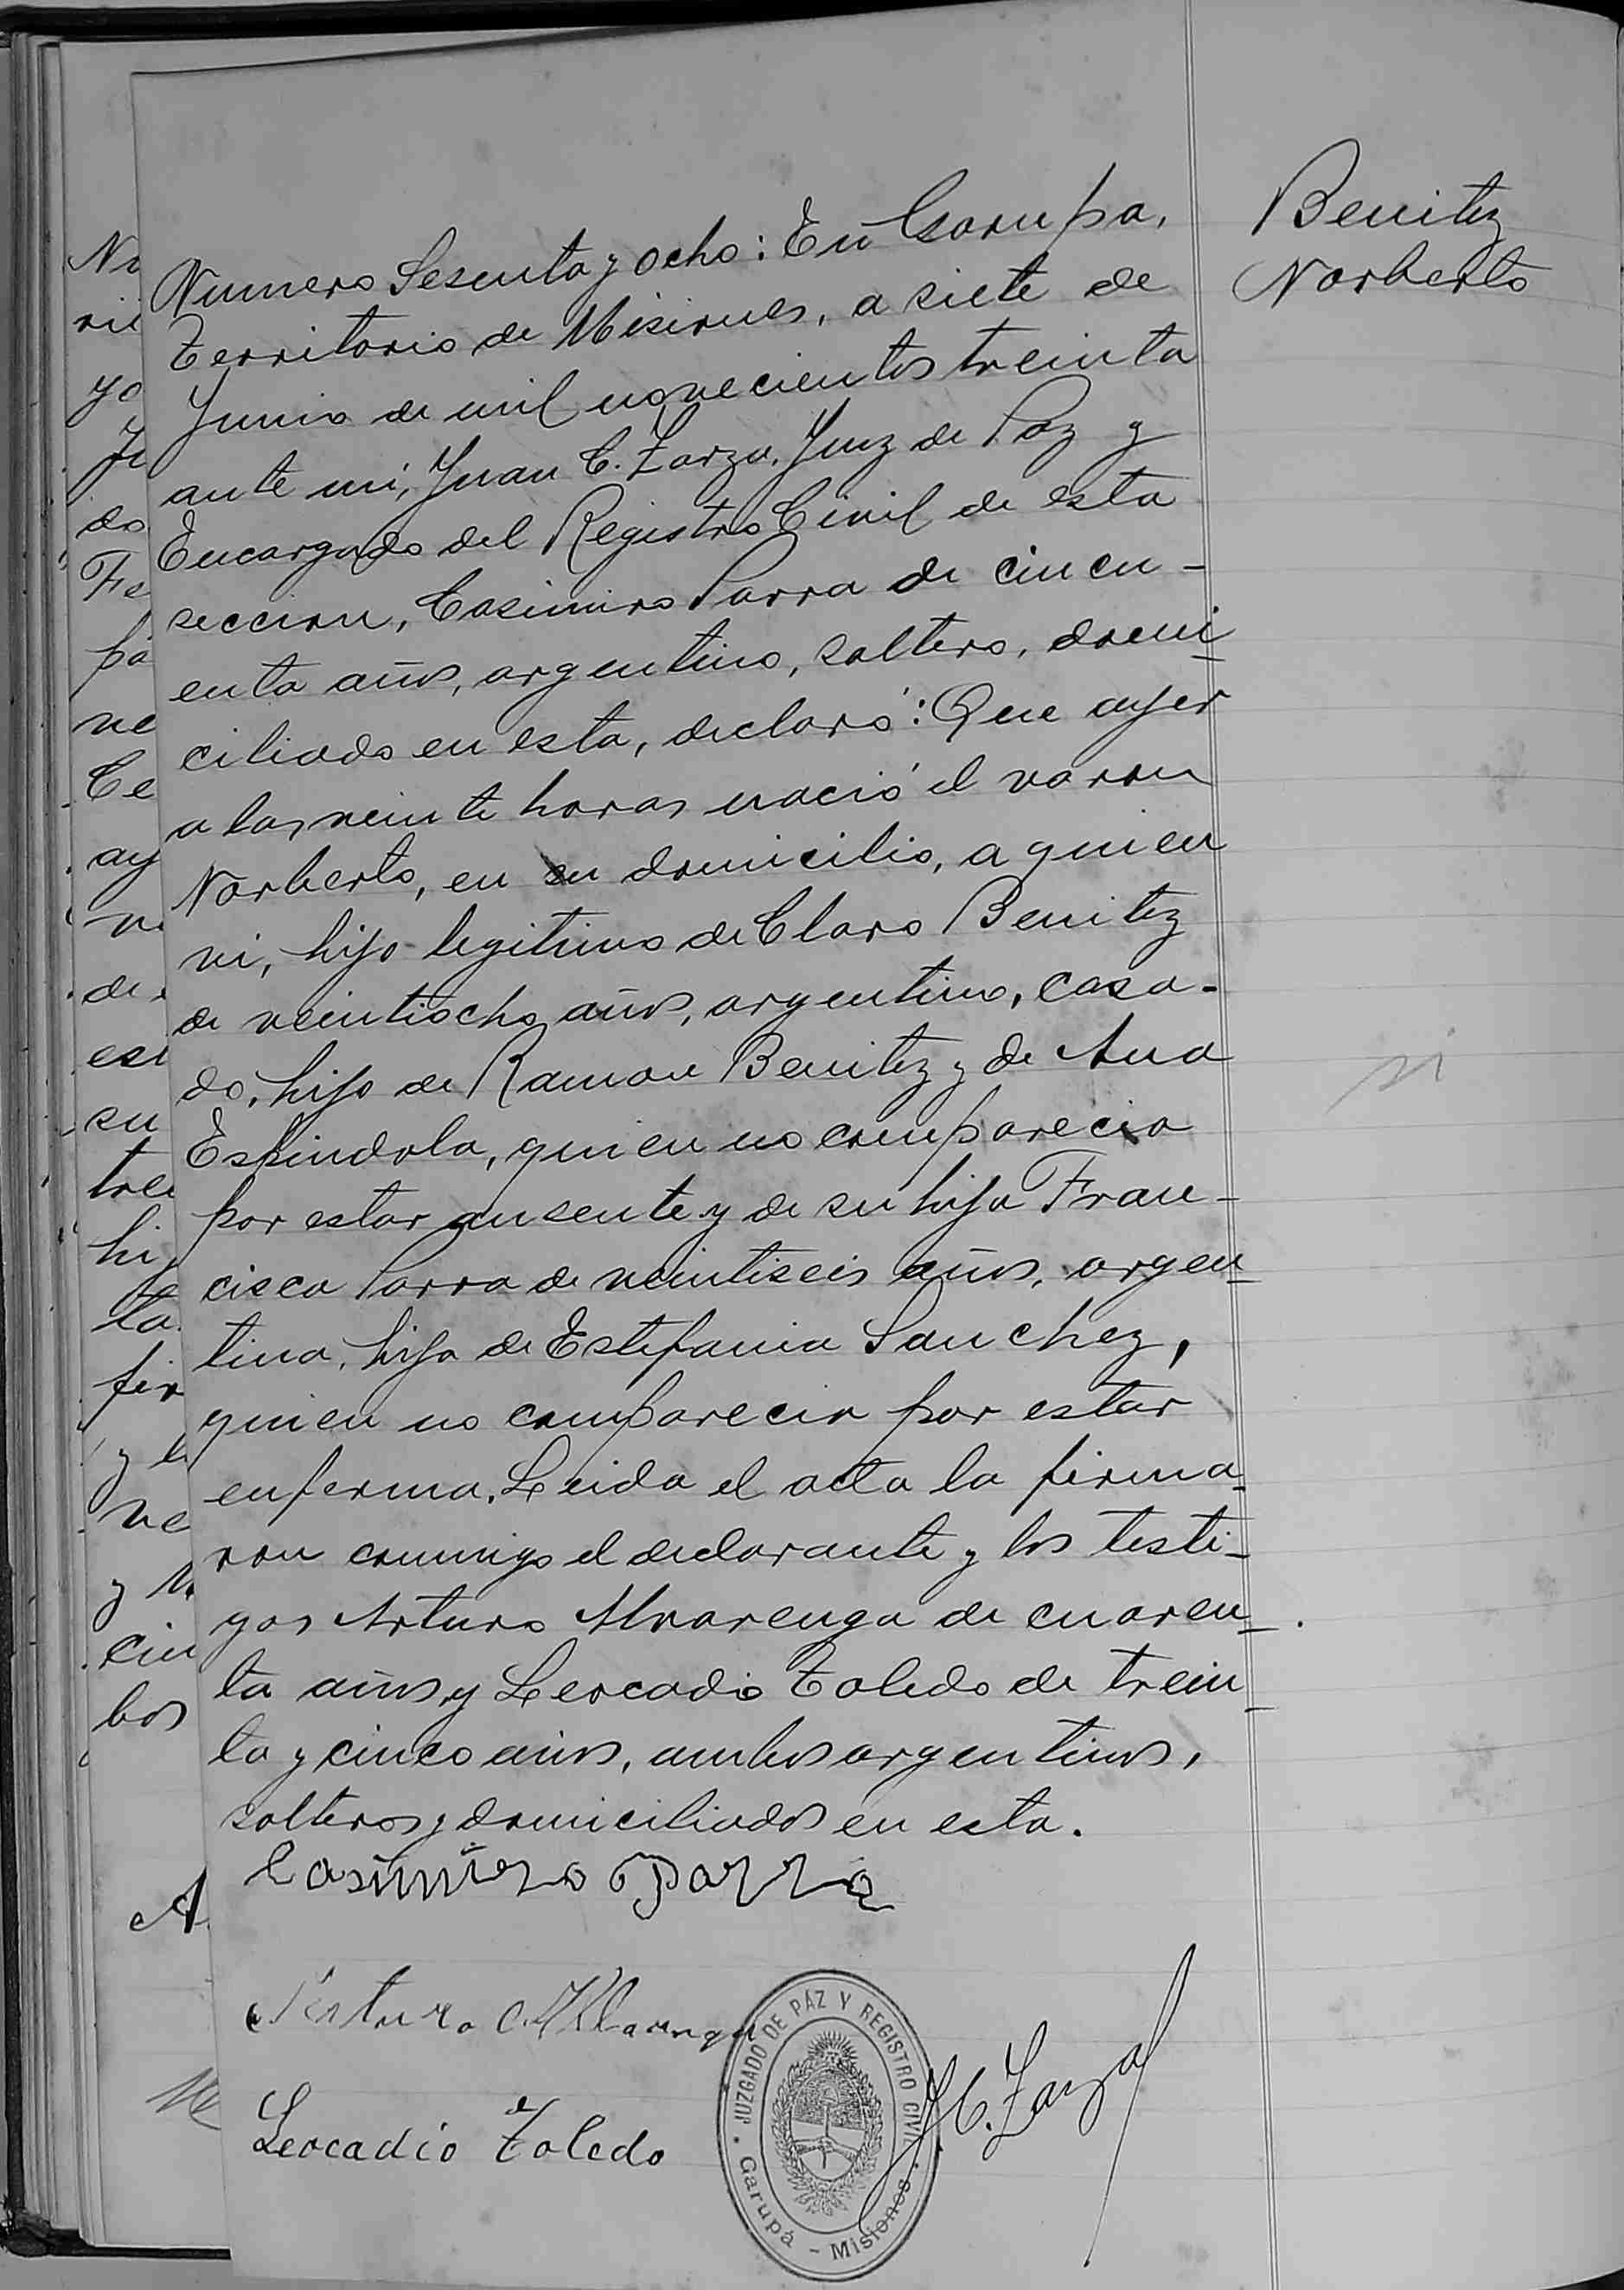 Benitez
Norberto
Numero Sesenta y ocho: En Garupa,
Territorio de Misiones, a siete de
Junio de mil novecientos treinta
ante mi, Juan C. Zarza, Juez de Paz y
Encargado del Registro Civil de esta
seccion, Casimiro Parra de cincu-
enta años, argentino, soltero, domi-
ciliado en esta, declaró: Que ayer
a las veinte horas nació el varon
Norberto, en su domicilio, a quien
vi, hijo legitimo de Claro Benitez
de veintiocho años, argentino, casa-
do, hijo de Ramon Benitez y de Ana
Espindola, quien no comparecio
por estar ausente y de su hija Fran-
cisca Parra de veintiseis años, argen-
tina, hija de Estefania Sanchez,
quien no comparecio por estar
enferma. Leida el acta la firma-
ron conmigo el declarante y los testi-
gos Arturo Alvarenga de cuaren-
ta años y Leocadio Toledo de trein-
ta y cinco años, ambos argentinos,
solteros y domiciliados en esta.
Casimiro Parra
Arturo Alvarenga
Leocadio Toledo
J.C. Zarza
JUZGADO DE PÁZ Y REGISTRO CIVIL
Garupá - Misiones
si
Nu
rio
yo
Ju
do
Fe
pa
ve
Ce
ay
de
esi
su
trei
hi
ta
fir
y l
ve
y
cin
bos
A